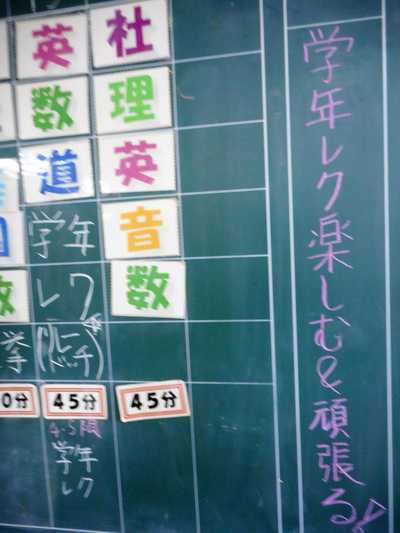 学年レク楽しむ&頑張る!
社
理
英
音
数
45分
英
数
道
学年
レク
45分
4.5限
学年
レク
国
数
挙
0分